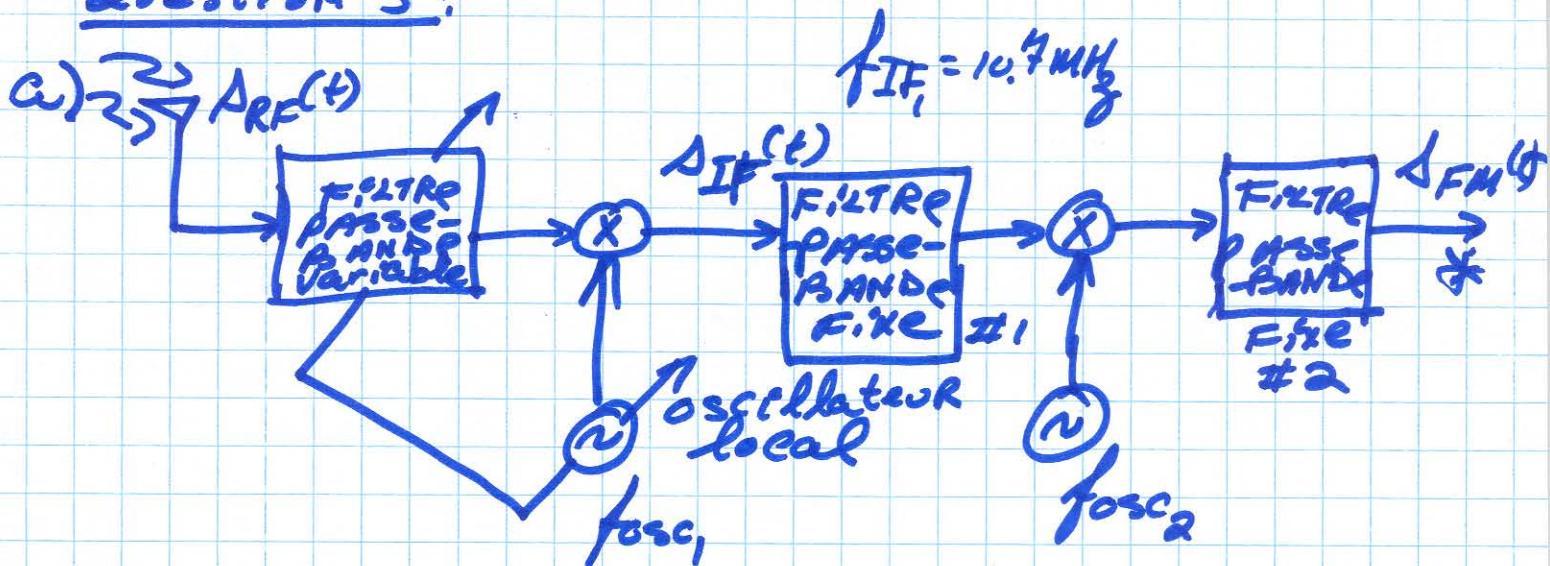 QUESTION 3:
a) s_RF(t)
f_IF1 = 10.7 MHz
s_IF(t)
s_FM(t)
*
FILTRE
PASSE-
BANDE
variable
X
FILTRE
-PASSE-
BANDE
FIXE #1
X
FILTRE
PASSE
-BANDE
FIXE
#2
~ oscillateur
local
fosc1
~
fosc2